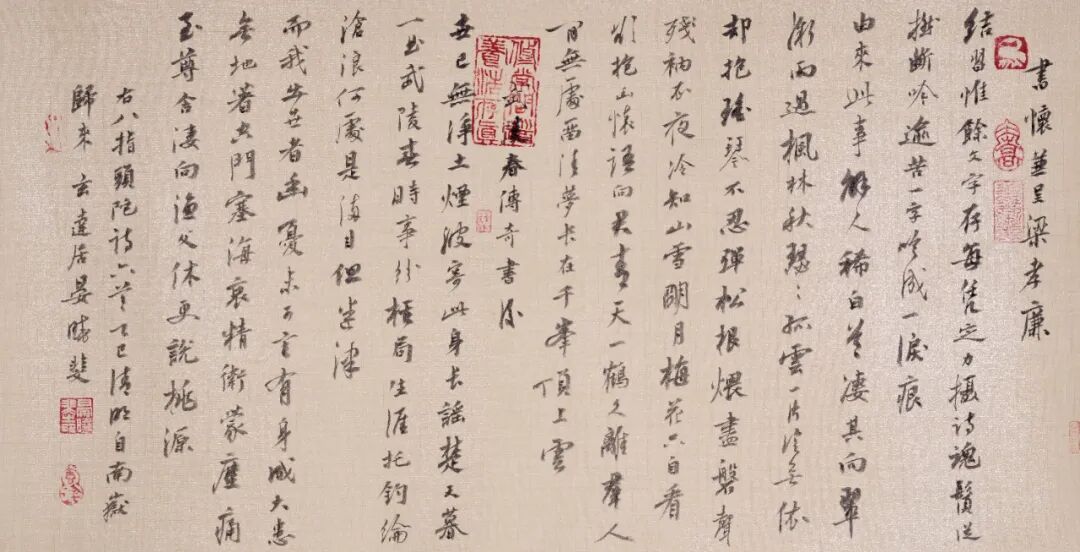 書懷兼呈梁孝廉
結習惟餘文字存每凭定力攝詩魂鬚從
撚斷吟逾苦一字吟成一淚痕
由來此事解人稀白首淒其向翠
微雨過楓林秋瑟〻孤雲一片澹無依
却抱瑤琴不忍彈松根煨盡磐聲
殘衲衣夜冷知山雪明月梅花只自看
欲抱山懷語向君青天一鶴久離羣人
間無處 清夢只在千峯頂上雲
武陵春傳奇書後
世已無淨土煙波寄此身長謠楚天暮
一曲武陵春時事紛棋局生涯托釣綸
滄浪何處是滿目但迷津
而我出世者幽憂未可言有身成大患
無地著空門塞海哀精衛蒙塵痛
至尊含淒向漁父休更說桃源
右八指頭陀詩六首乙巳清明自南嶽
歸來 玄達居晏晴斐